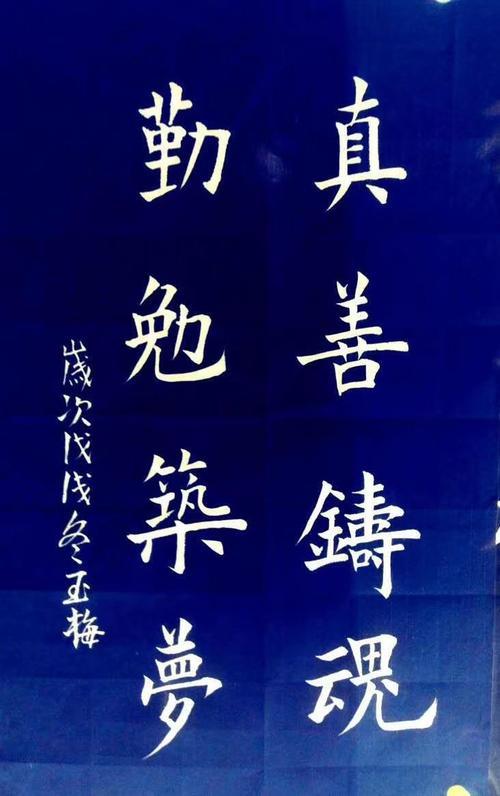 真善鑄魂
勤勉築夢
歲次戊戌冬玉梅